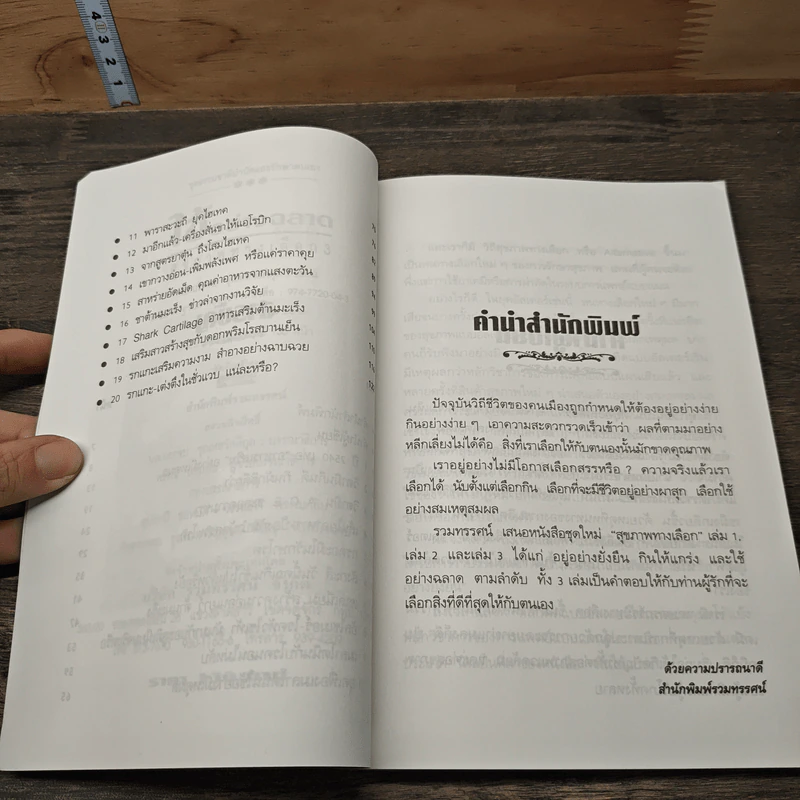 4
3
2
1
11 พาราสะวะถี ยุคไฮเทค
12 มาอีกแล้ว-เครื่องสั่นขาให้แอโรบิก
13 จากสูตรยาตุ๋น ถึงโสมไฮเทค
14 เขากวางอ่อน-เพิ่มพลังเพศ หรือแค่ราคาคุย
15 สาหร่ายอัดเม็ด คุณค่าอาหารจากแสงตะวัน
16 ชาต้านมะเร็ง ข่าวล่าจากงานวิจัย
17 Shark Cartilage อาหารเสริมต้านมะเร็ง
18 เสริมสาวสร้างสุขกับดอกพริมโรสบานเย็น
19 รกแกะเสริมความงาม สำอางอย่างฉาบฉวย
20 รกแกะ-เต่งตึงในชั่วแวบ แน่ละหรือ?
คำนำสำนักพิมพ์
ปัจจุบันวิถีชีวิตของคนเมืองถูกกำหนดให้ต้องอยู่อย่างง่าย
กินอย่างง่าย ๆ เอาความสะดวกรวดเร็วเข้าว่า ผลที่ตามมาอย่าง
หลีกเลี่ยงไม่ได้คือ สิ่งที่เราเลือกให้กับตนเองนั้นมักขาดคุณภาพ
เราอยู่อย่างไม่มีโอกาสเลือกสรรหรือ ? ความจริงแล้วเรา
เลือกได้ นับตั้งแต่เลือกกิน เลือกที่จะมีชีวิตอยู่อย่างผาสุก เลือกใช้
อย่างสมเหตุสมผล
รวมทรรศน์ เสนอหนังสือชุดใหม่ "สุขภาพทางเลือก" เล่ม 1.
เล่ม 2 และเล่ม 3 ได้แก่ อยู่อย่างยั่งยืน กินให้แกร่ง และใช้
อย่างฉลาด ตามลำดับ ทั้ง 3 เล่มเป็นคำตอบให้กับท่านผู้รักที่จะ
เลือกสิ่งที่ดีที่สุดให้กับตนเอง
ด้วยความปรารถนาดี
สำนักพิมพ์รวมทรรศน์